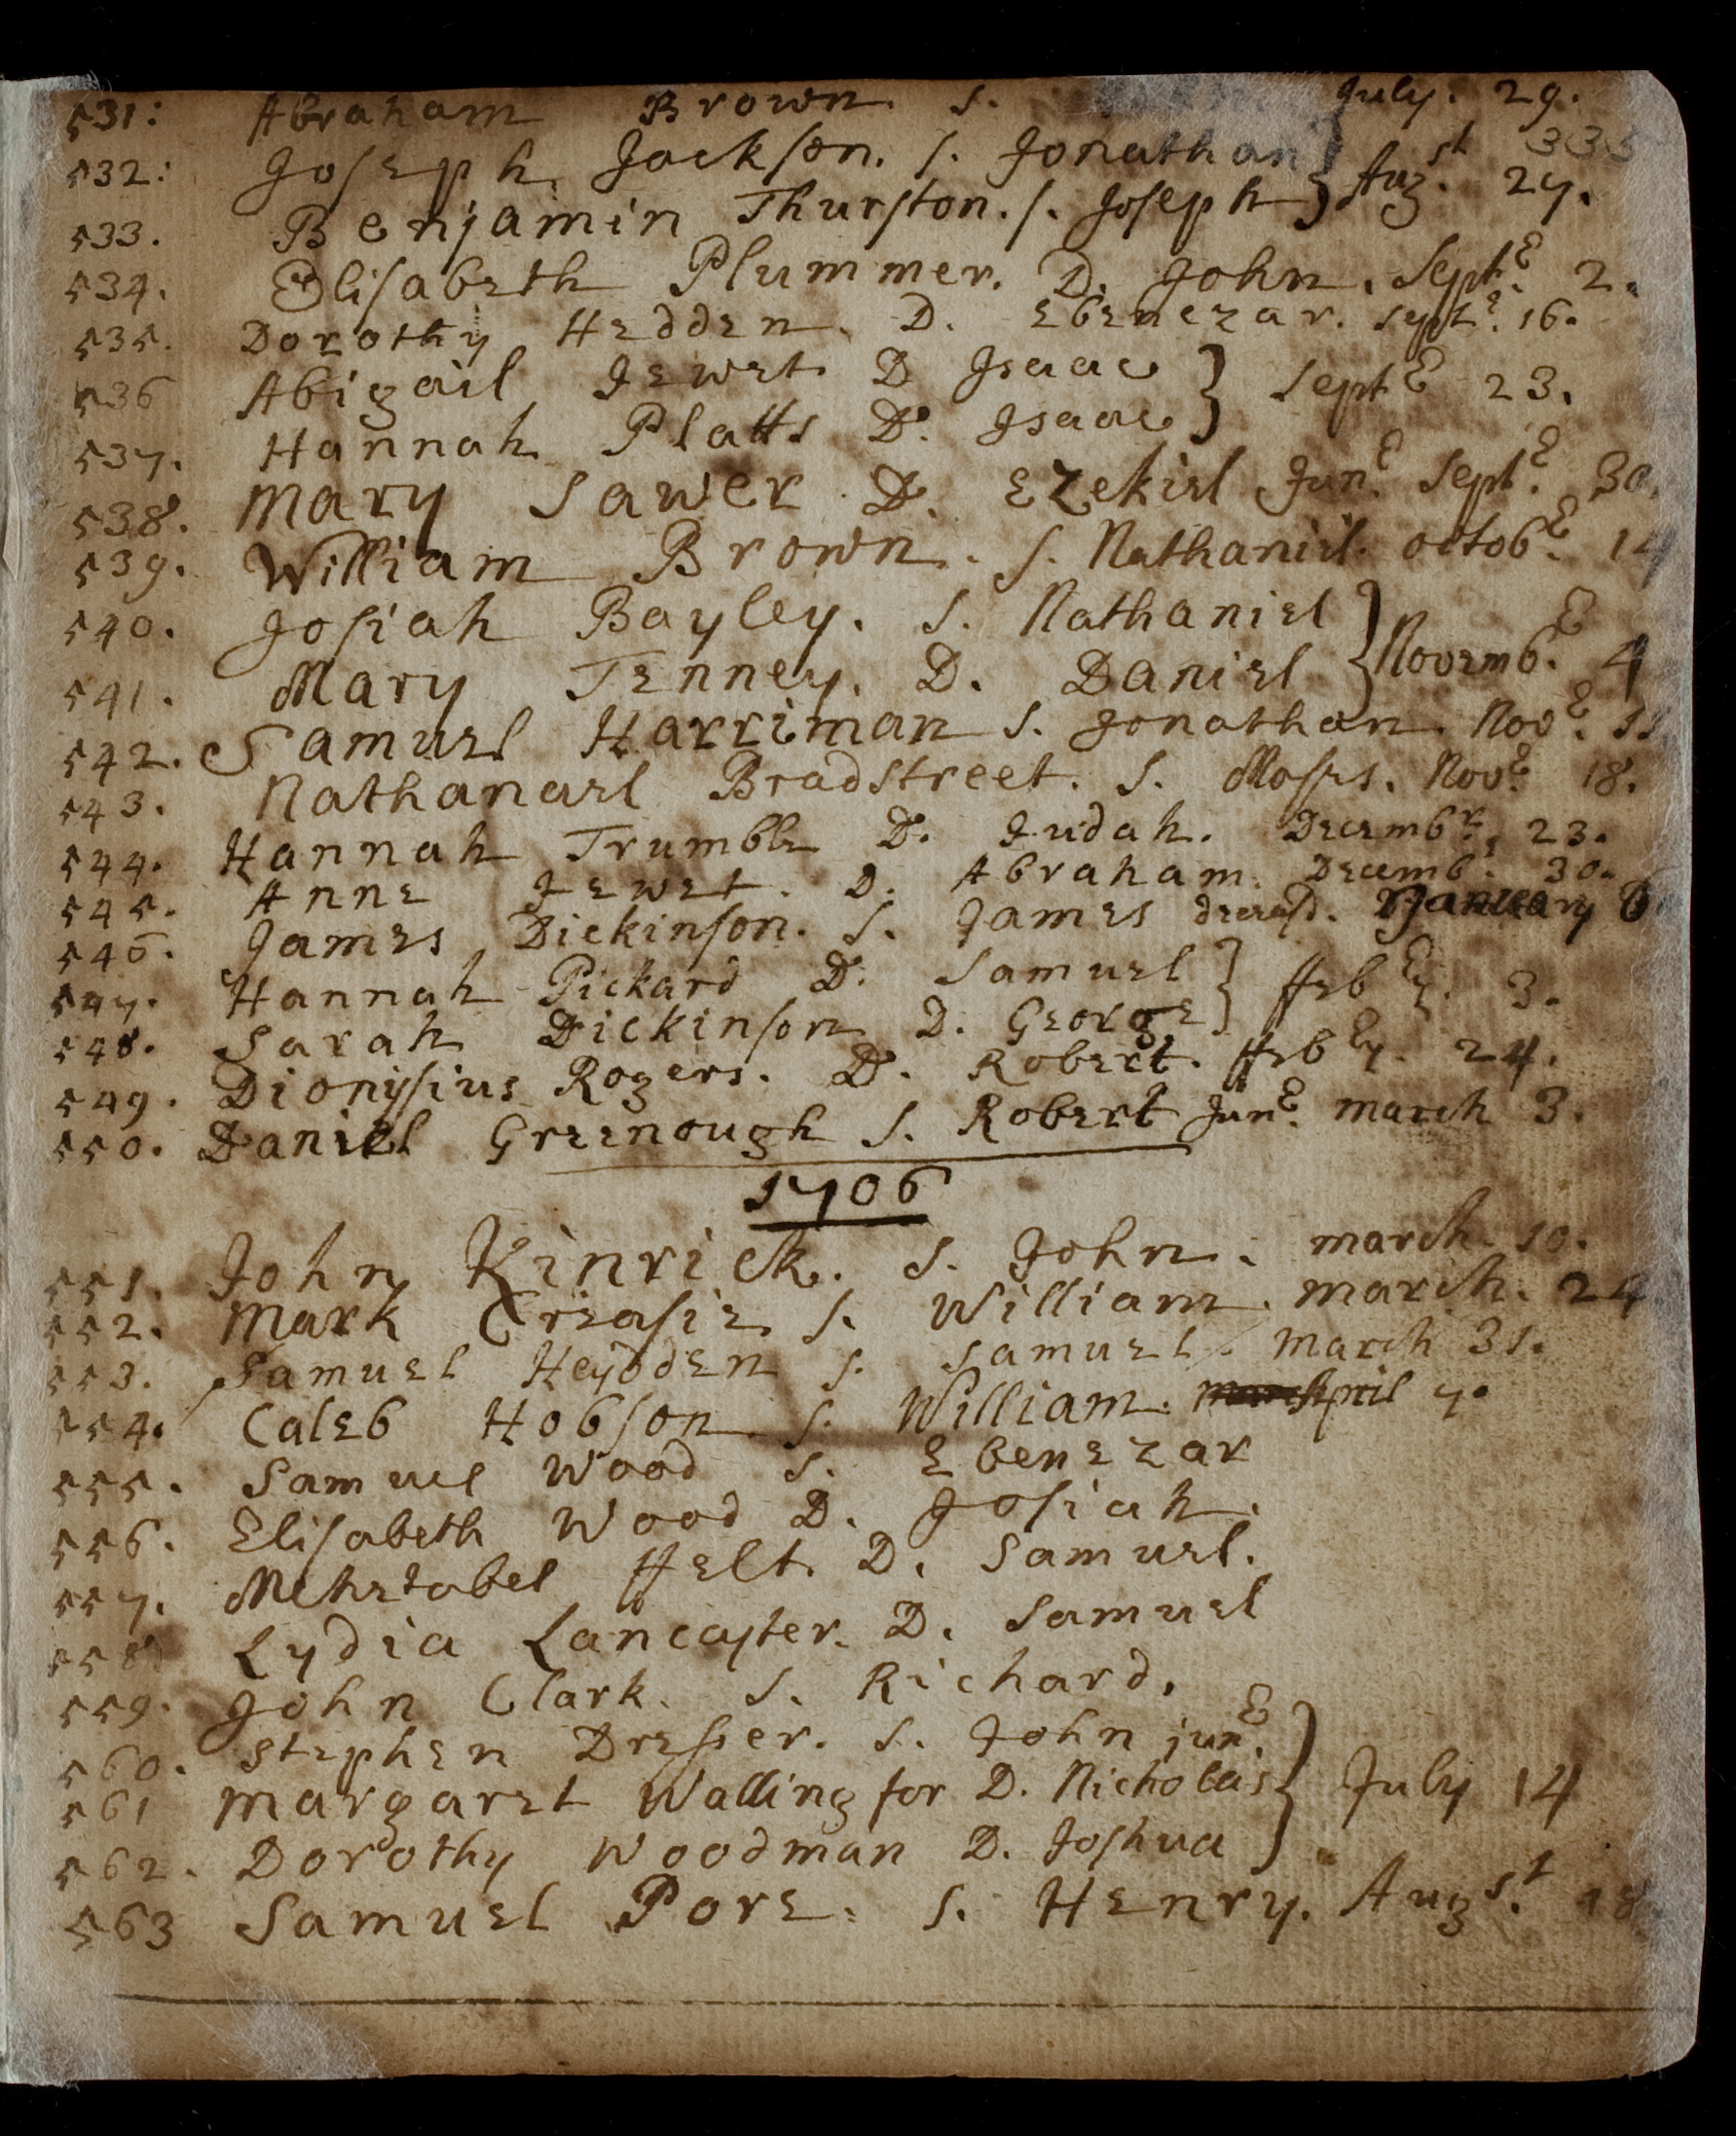 531: Abraham Brown. S. July. 29.
335
532: Joseph Jackson. S. Jonathan } Aug.st 27.
533. Benjamin Thurston. S. Joseph }
534. Elisabeth Plummer. D. John. Septr. 2.
535. Dorothy Hedden. D. Ebenezar. Septr. 16.
536 Abigail Jewet D Isaac } Septr 23.
537. Hannah Platts D. Isaac }
538. Mary Sawer D. Ezekiel Junr. Septr. 30.
539. William Brown. S. Nathaniel. octobr. 14
540. Josiah Bayley. S. Nathaniel } Novembr. 4
541. Mary Tenney. D. Daniel }
542. Samuel Harriman S. Jonathan. Novr. 11
543. Nathanael Bradstreet. S. Moses. Novr. 18.
544. Hannah Trumble D. Judah. Decembr. 23.
545. Anne Jewet. D. Abraham. Decembr. 30.
546. James Dickinson. S. James deceasd. January 6
547. Hannah Pickard D. Samuel } ffebry. 3.
548. Sarah Dickinson D. George }
549. Dionysius Rogers. D. Robert. ffebry. 24.
550. Daniel Greenough S. Robert Junr. march 3.
1706
551. John Kinrick. S. John. march. 10.
552. Mark Creasie S. William. march. 24
553. Samuel Heydden S. Samuel. March 31.
554. Caleb Hobson S. William. April 7.
555. Samuel Wood S. Ebenezar
556. Elisabeth Wood D. Josiah.
557. Mehetabel ffelt D. Samuel.
558 Lydia Lancaster. D. Samuel
559. John Clark. S. Richard.
560. Stephen Dresser. S. John junr. }
561 Margaret Walling for D. Nicholas } July 14
562. Dorothy Woodman D. Joshua }
563 Samuel Pore. S. Henry. Augst. 18